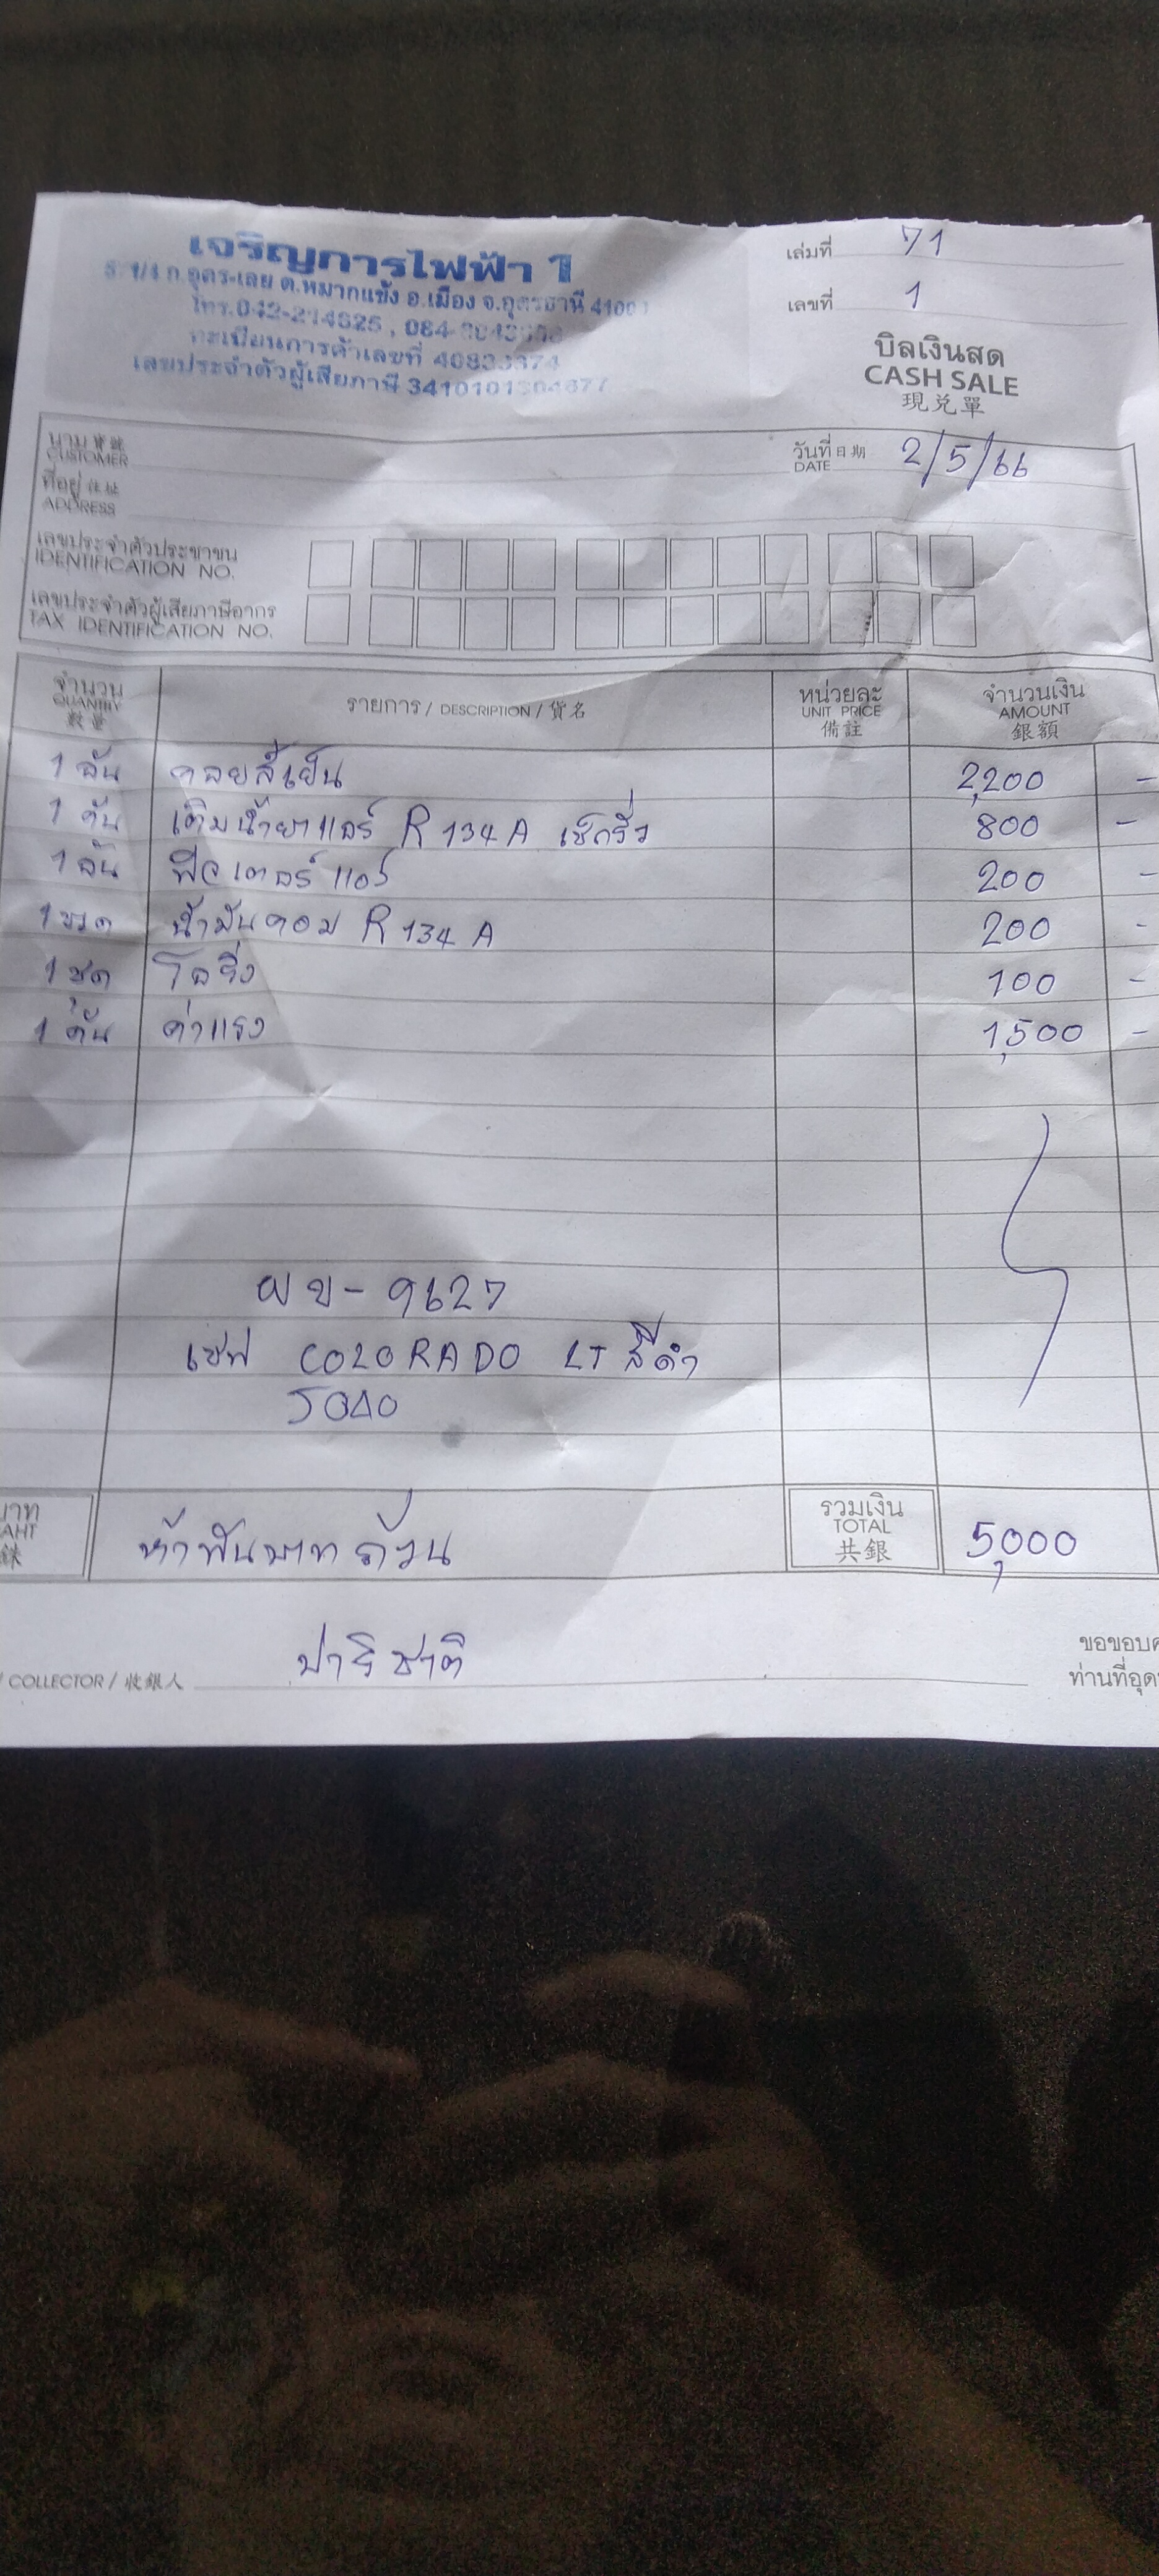 เจริญการไฟฟ้า 1
ถ.อุดร-เลย ต.หมากแข้ง อ.เมือง จ.อุดรธานี 41000
โทร.042-214625 , 084-
ทะเบียนการค้าเลขที่
เลขประจำตัวผู้เสียภาษี
เล่มที่ 71
เลขที่ 1
บิลเงินสด
CASH SALE
現兌單
นาม 寶號
CUSTOMER
วันที่ 日期 2/5/66
DATE
ที่อยู่ 住址
ADDRESS
เลขประจำตัวประชาชน
IDENTIFICATION NO.
เลขประจำตัวผู้เสียภาษีอากร
TAX IDENTIFICATION NO.
จำนวน รายการ / DESCRIPTION / 貨名 หน่วยละ จำนวนเงิน
QUANTITY UNIT PRICE AMOUNT
數量 備註 銀額
1 อัน คอยล์เย็น 2,200 -
1 คัน เติมน้ำยาแอร์ R 134 A เช็ครั่ว 800 -
1 อัน ฟิวเตอร์ แอร์ 200 -
1 ขวด น้ำมันคอม R 134 A 200 -
1 ชุด โอริ่ง 100 -
1 คัน ค่าแรง 1,500 -
ผข - 9627
เชฟ COLORADO LT สีดำ
บาท ห้าพันบาทถ้วน รวมเงิน 5,000
AHT TOTAL
銖 共銀
/ COLLECTOR / 收銀人 ปาริชาติ
ขอขอบค
ท่านที่อุด